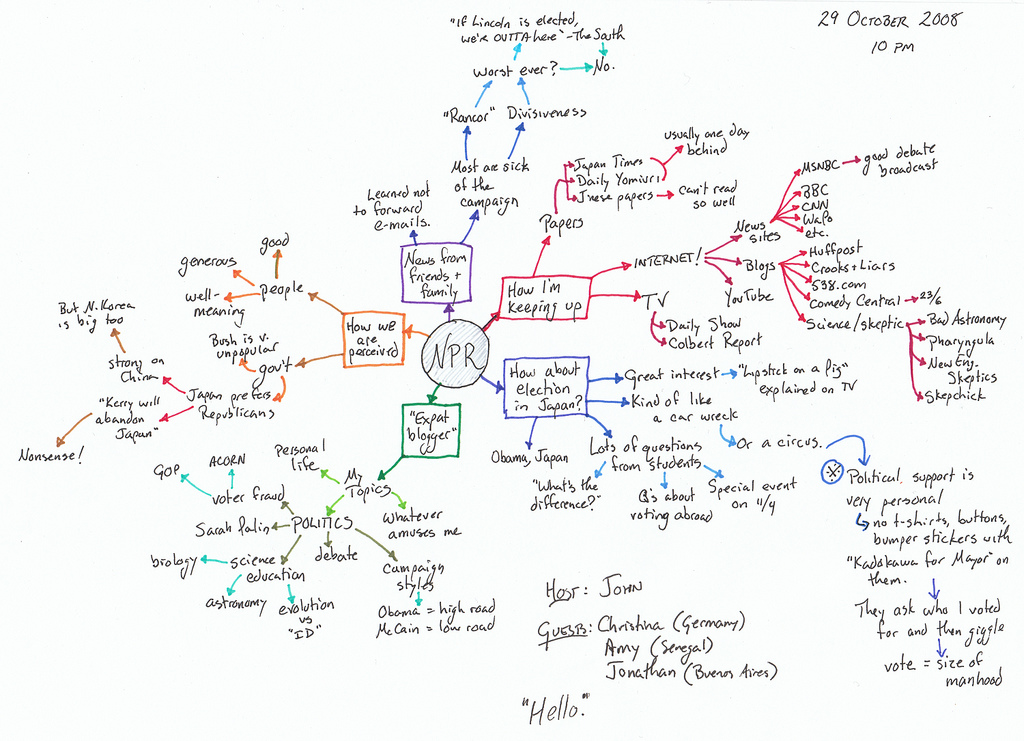 29 OCTOBER 2008
10 PM
"If Lincoln is elected,
we're OUTTA here" - The South
Worst ever?
No.
"Rancor"
Divisiveness
Most are sick
of the
campaign
Learned not
to forward
e-mails.
News from
friends +
family
usually one day
behind
Japan Times
Daily Yomiuri
J'nese papers
can't read
so well
Papers
How I'm
keeping up
INTERNET!
News
sites
MSNBC
good debate
broadcast
BBC
CNN
WaPo
etc.
Blogs
Huffpost
Crooks + Liars
538.com
Comedy Central
23/6
Science/skeptic
Bad Astronomy
Pharyngula
New Eng.
Skeptics
Skepchick
YouTube
TV
Daily Show
Colbert Report
NPR
How we
are
perceived
people
good
generous
well-
meaning
gov't
Bush is v.
unpopular
Japan prefers
Republicans
strong on
China
But N. Korea
is big too
"Kerry will
abandon
Japan"
Nonsense!
How about
election
in Japan?
Great interest
"lipstick on a pig"
explained on TV
Kind of like
a car wreck
Or a circus.
Obama, Japan
Lots of questions
from students
"What's the
difference?"
Q's about
voting abroad
Special event
on 4/4
※
Political support is
very personal
no t-shirts, buttons,
bumper stickers with
"Kadokawa for Mayor" on
them.
They ask who I voted
for and then giggle
vote = size of
manhood
"Expat
blogger"
My
Topics
Personal
life
Whatever
amuses me
POLITICS
voter fraud
GOP
ACORN
Sarah Palin
science
education
biology
astronomy
evolution
vs
"ID"
debate
campaign
styles
Obama = high road
McCain = low road
HOST: JOHN
GUESTS: Christina (Germany)
Amy (Senegal)
Jonathan (Buenos Aires)
"Hello."